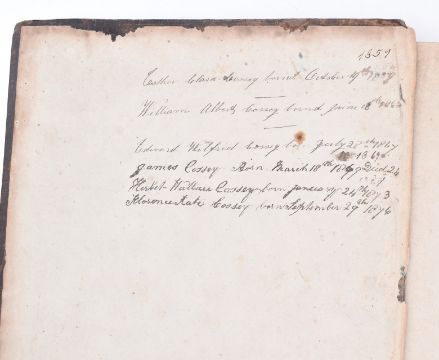 1859
Esther Clara Cossey born October 4th
William Albert Cossey born June 18th
Edward Wilfred Cossey born July 28th 1867
James Cossey Born March 18th Died 24
Herbert Wallace Cossey born January 24th 1873
Florence Kate Cossey born September 29th 1876